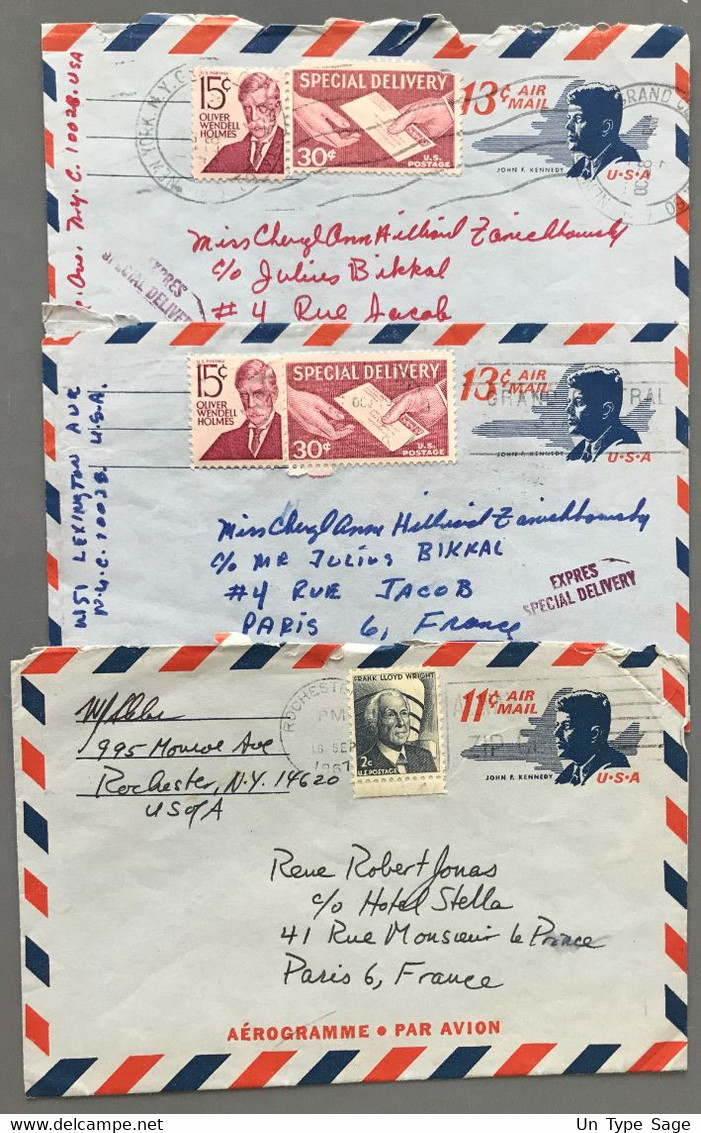 15¢
U.S. POSTAGE
OLIVER
WENDELL
HOLMES
SPECIAL DELIVERY
30¢
U.S.
POSTAGE
13¢ AIR
MAIL
JOHN F. KENNEDY
U·S·A
NEW YORK, N.Y.
GRAND
Ave. N.Y.C. 10028. USA
EXPRES
SPECIAL DELIVERY
Miss Cheryl Ann Hilliard
c/o Julius Bikkal
#4 Rue Jacob
15¢
U.S. POSTAGE
OLIVER
WENDELL
HOLMES
SPECIAL DELIVERY
30¢
U.S.
POSTAGE
13¢ AIR
MAIL
GRAND CENTRAL
JOHN F. KENNEDY
U·S·A
LEXINGTON AVE
N.Y.C. 10028 U.S.A.
Miss Cheryl Ann Hilliard
c/o MR JULIUS BIKKAL
#4 RUE JACOB
PARIS 6, France
EXPRES
SPECIAL DELIVERY
995 Monroe Ave
Rochester, N.Y. 14620
US of A
ROCHESTER
PM
16 SEP
1967
FRANK LLOYD WRIGHT
2¢
U.S. POSTAGE
ZIP
11¢ AIR
MAIL
JOHN F. KENNEDY
U·S·A
Rene Robert Jonas
c/o Hotel Stella
41 Rue Monsieur le Prince
Paris 6, France
AÉROGRAMME • PAR AVION
Un Type Sage